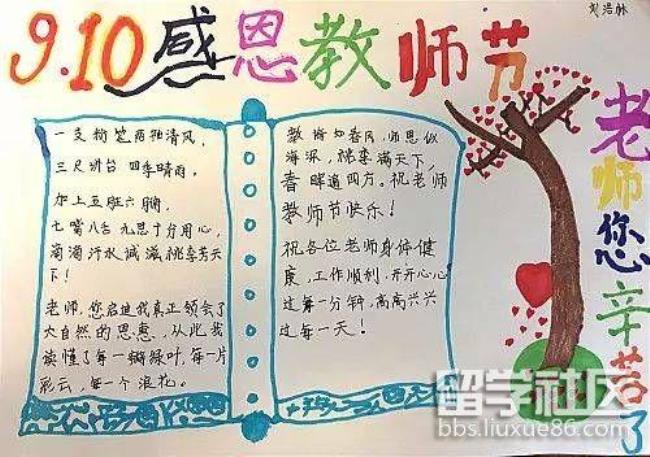 刘浩林
9.10感恩教师节
老师您辛苦了
一支粉笔两袖清风，
三尺讲台 四季晴雨，
加上五班六腑
七嘴八舌 九思十分用心，
滴滴汗水诚滋桃李芳天
下！
老师，您启迪我真正领会了
大自然的恩惠，从此我
读懂了每一瓣绿叶，每一片
彩云，每一个浪花。
教诲如春风，师恩似
海深，桃李满天下，
春晖遍四方。祝老师
教师节快乐！
祝各位老师身体健
康，工作顺利，开开心心
过每一分钟，高高兴兴
过每一天！
留学社区
bbs.liuxue86.com